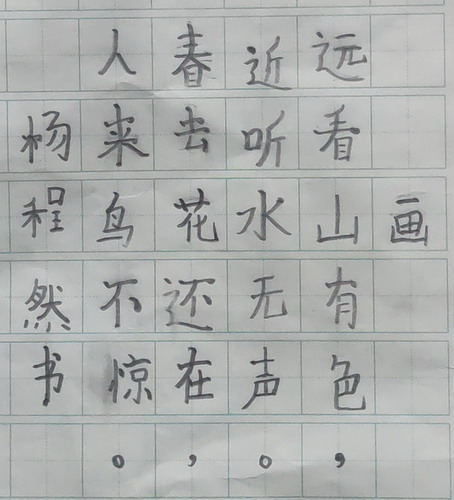 画
远看山有色，
近听水无声。
春去花还在，
人来鸟不惊。
杨程然书